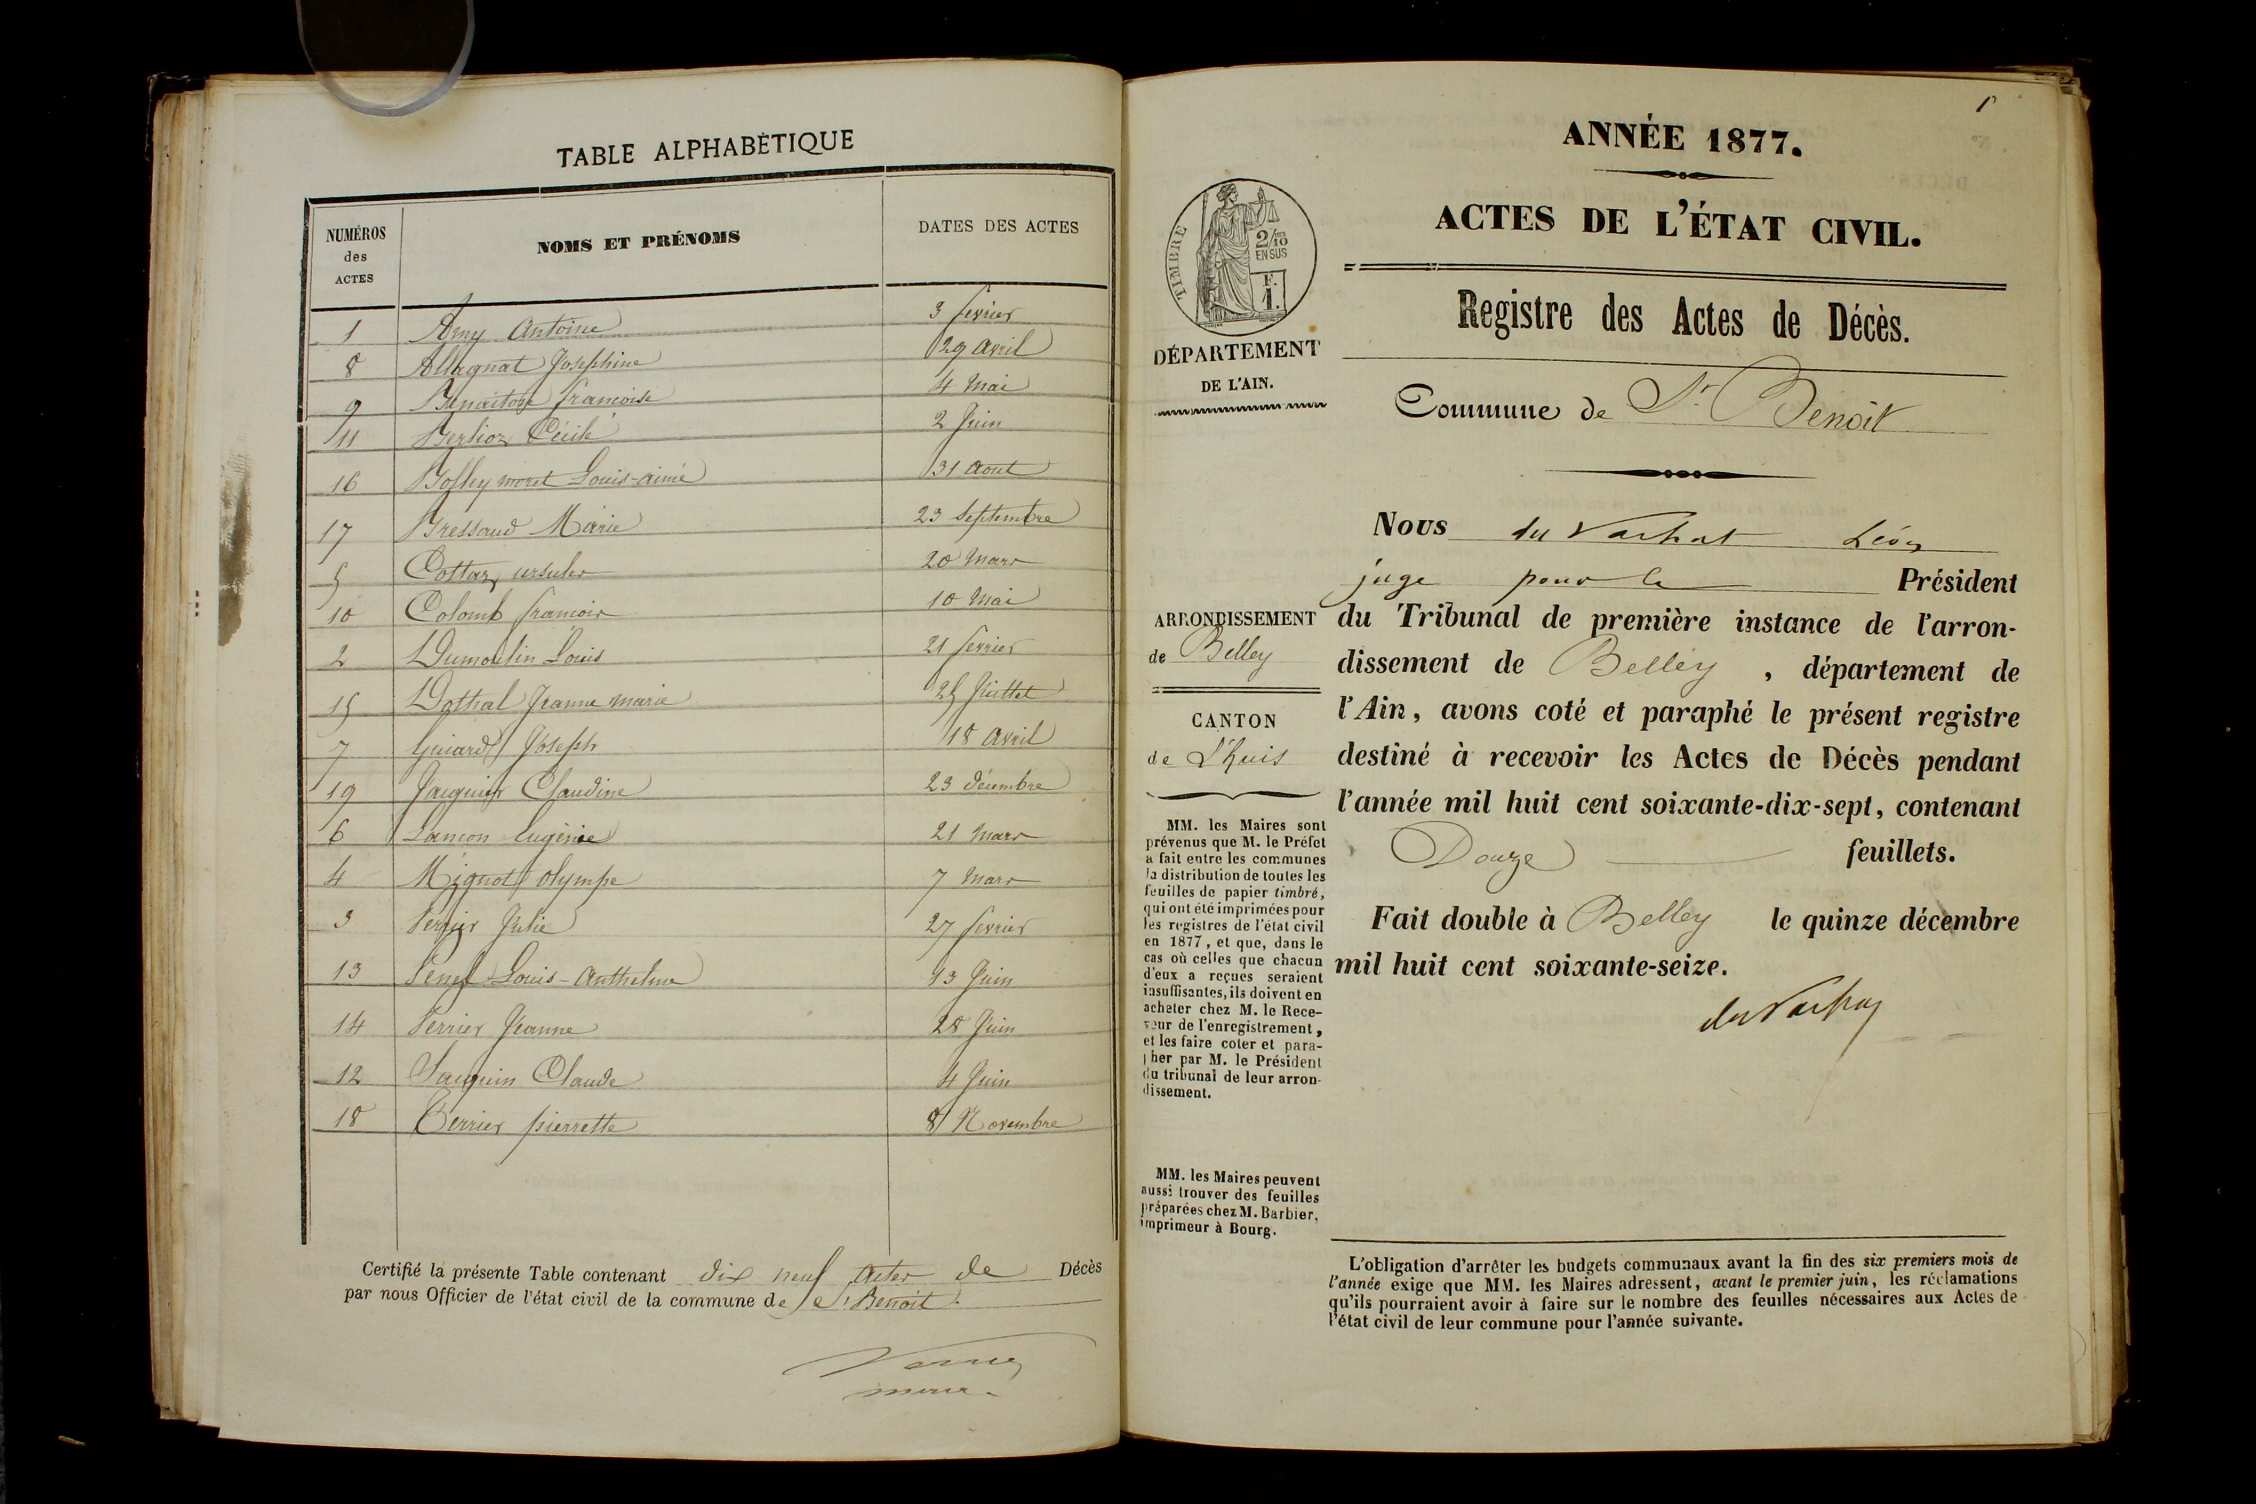 TABLE ALPHABÉTIQUE
NUMÉROS des ACTES NOMS ET PRÉNOMS DATES DES ACTES
1 Amy Antoine 3 février
8 Allagnat Josephine 29 avril
9 francoise 4 Mai
11 Berlioz Cécile 2 Juin
16 Louis-aimé 31 aout
17 Bressand Marie 23 septembre
5 Cottaz ursule 20 Mars
10 Colomb francois 10 Mai
2 Dumoulin Louis 21 février
15 Jeanne marie 25 Juillet
7 Guiard Joseph 18 avril
19 Jacquier Claudine 23 décembre
6 Lancon Eugénie 21 Mars
4 Mignot olympe 7 Mars
3 Julie 27 février
13 Louis-Anthelme 13 Juin
14 Perrier Jeanne 28 Juin
12 Claude 4 Juin
18 pierrette 8 Novembre
Certifié la présente Table contenant dix neuf actes de Décès
par nous Officier de l'état civil de la commune de St Benoit
1r
ANNÉE 1877.
ACTES DE L'ÉTAT CIVIL.
Registre des Actes de Décès.
TIMBRE
2/10
EN SUS
F.
1.
DÉPARTEMENT
DE L'AIN.
Commune de St Benoit
Nous du Vachat Léon
juge pour le Président
du Tribunal de première instance de l'arron-
dissement de Belley, département de
l'Ain, avons coté et paraphé le présent registre
destiné à recevoir les Actes de Décès pendant
l'année mil huit cent soixante-dix-sept, contenant
Douze feuillets.
Fait double à Belley le quinze décembre
mil huit cent soixante-seize.
du Vachat
ARRONDISSEMENT
de Belley
CANTON
de L'huis
MM. les Maires sont
prévenus que M. le Préfet
a fait entre les communes
la distribution de toutes les
feuilles de papier timbré,
qui ont été imprimées pour
les registres de l'état civil
en 1877, et que, dans le
cas où celles que chacun
d'eux a reçues seraient
insuffisantes, ils doivent en
acheter chez M. le Rece-
veur de l'enregistrement,
et les faire coter et para-
pher par M. le Président
du tribunal de leur arron-
dissement.
MM. les Maires peuvent
aussi trouver des feuilles
préparées chez M. Barbier,
imprimeur à Bourg.
L'obligation d'arrêter les budgets communaux avant la fin des six premiers mois de
l'année exige que MM. les Maires adressent, avant le premier juin, les réclamations
qu'ils pourraient avoir à faire sur le nombre des feuilles nécessaires aux Actes de
l'état civil de leur commune pour l'année suivante.